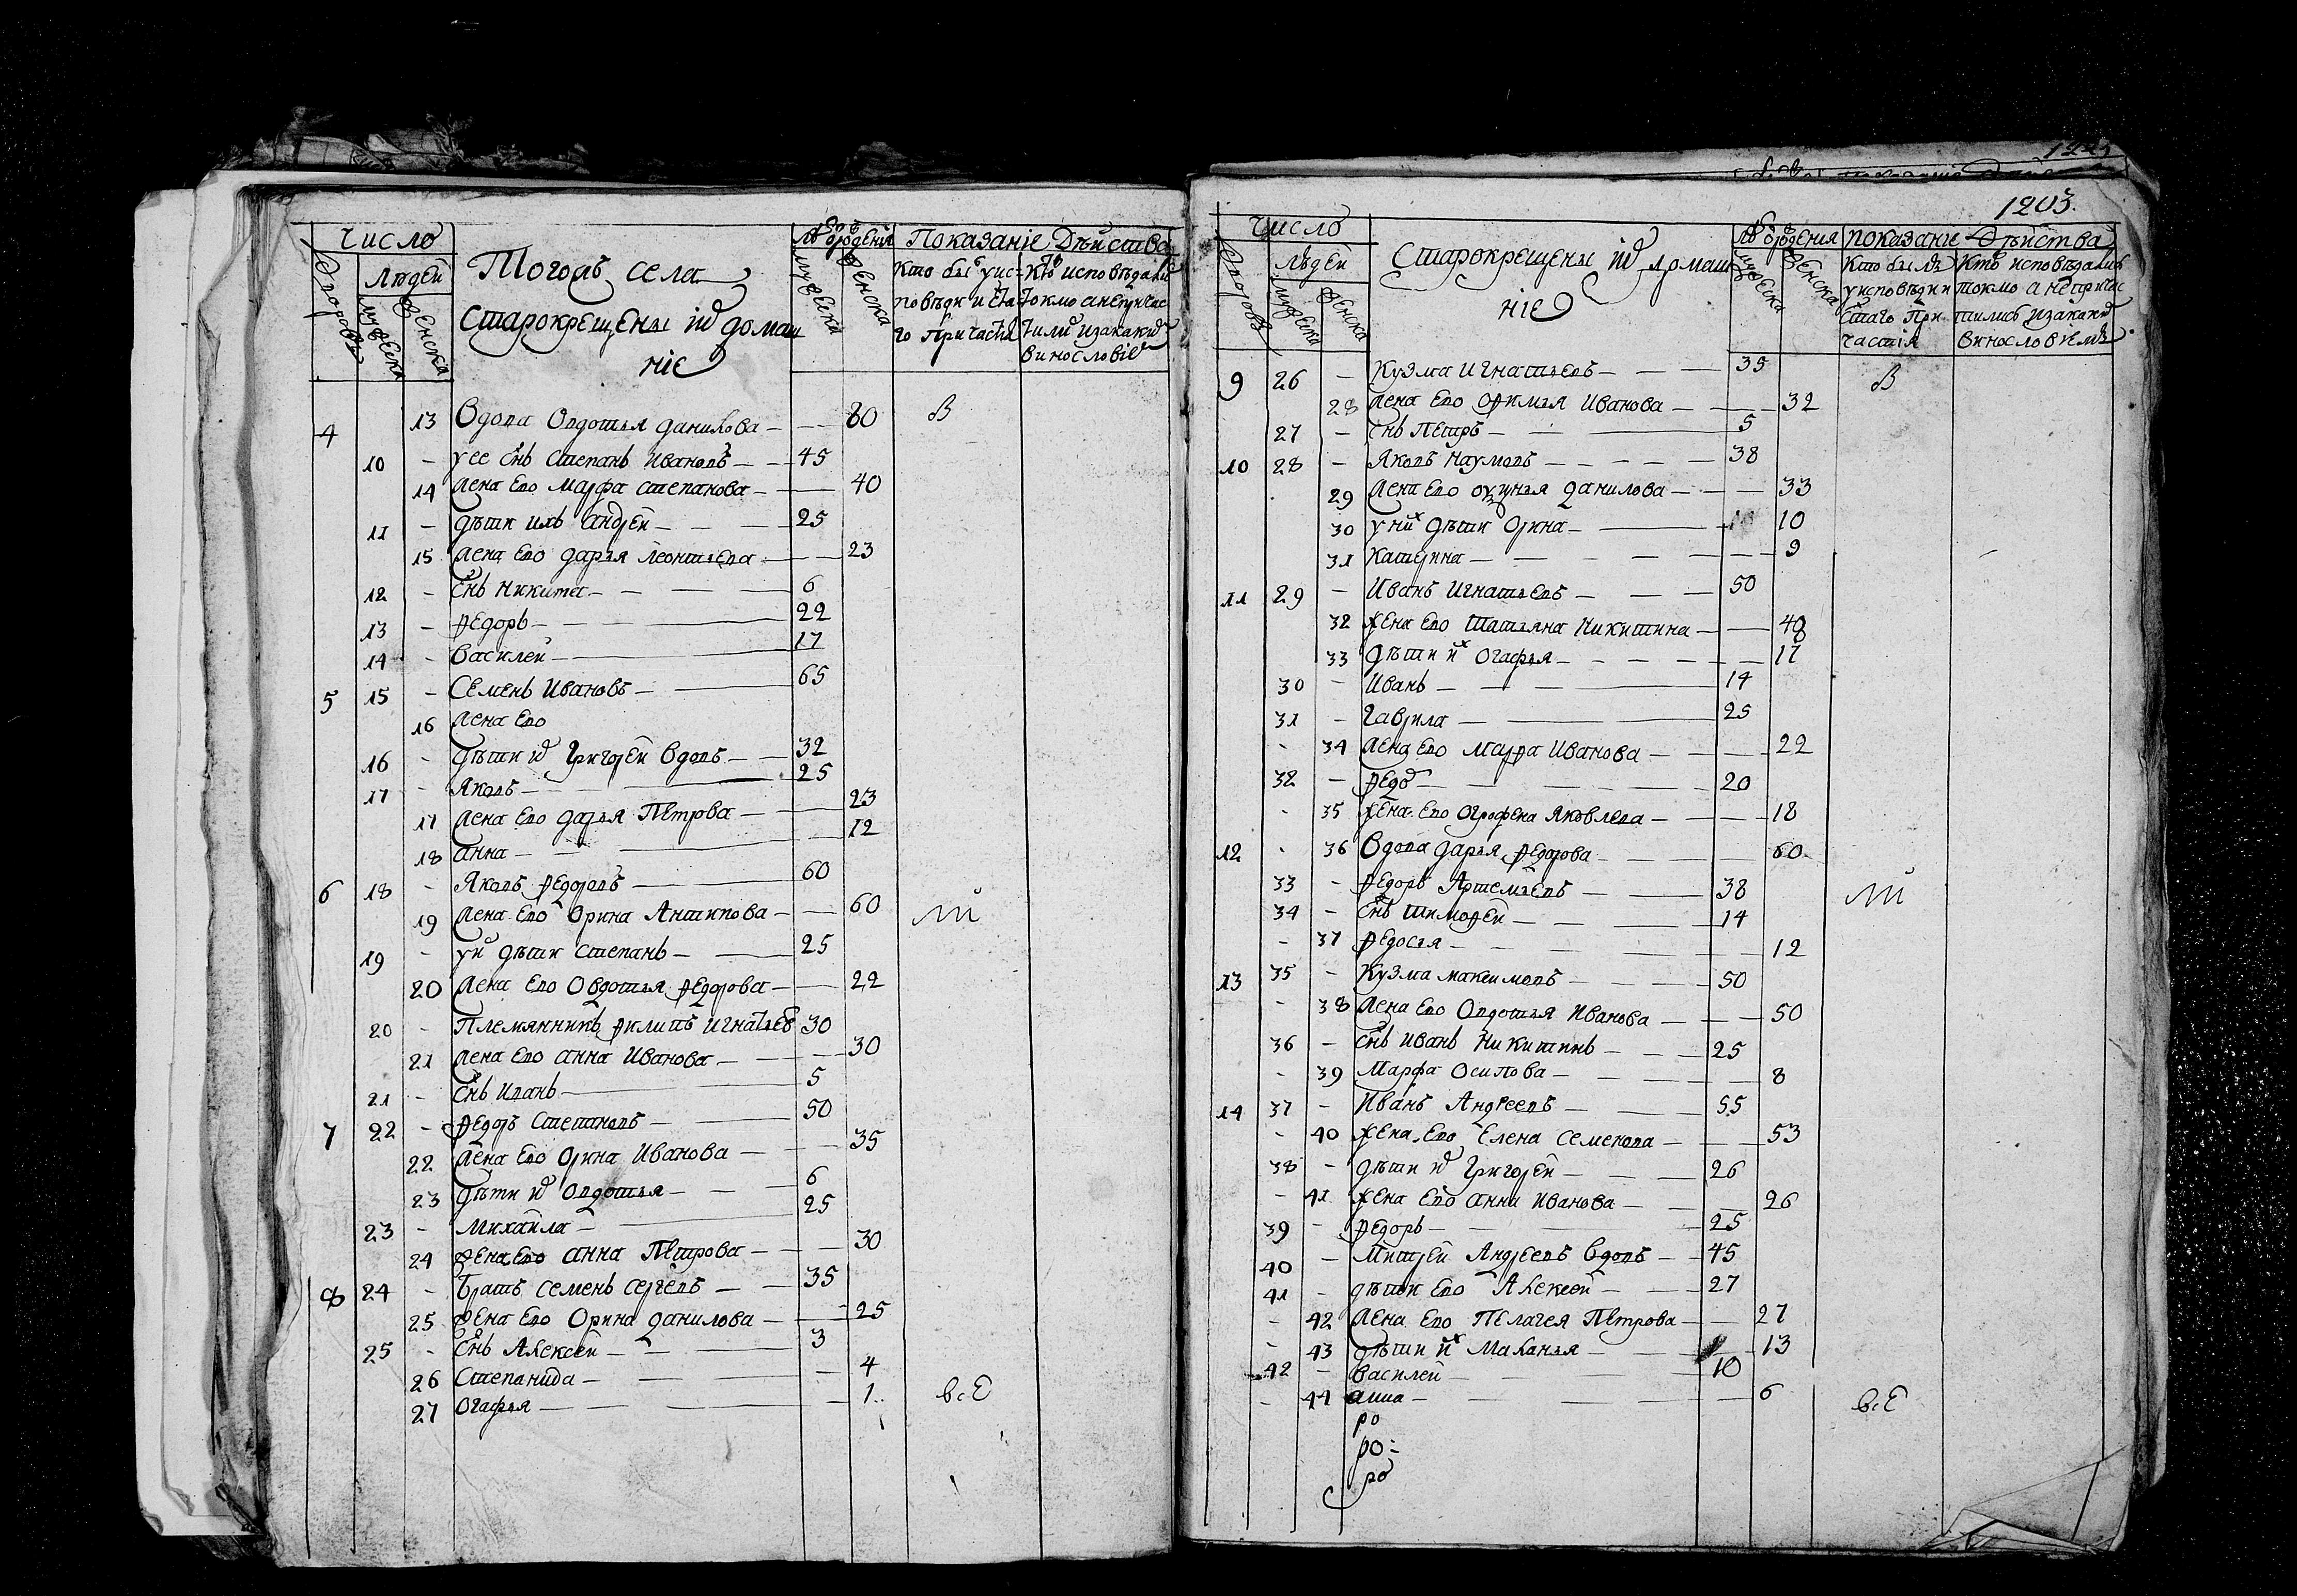 Число
Людей
Дворовъ
мужеска
женска
Тогожъ села
старокрещены и домаш
ніе
Лѣ ѿ рожденія
мужеска
женска
Показаніе Дѣйства
Кто был у ис-
повѣди и ста-
го Причастія
Кто исповѣдали
токмо а непричас
тили и закаким
винословіе
4 13 Вдова Овдотья данилова 80 В
10 - у нее снъ Степанъ Ивановъ 45
14 Жена ево Марфа степанова 40
11 - дѣти ихъ андрей 25
15 жена ево дарья леонтьева 23
12 - снъ Никита 6
13 - Федоръ 22
14 - Василей 17
5 15 - Семенъ Ивановъ 65
16 жена ево
16 - дѣти их Григорей вдовъ 32
17 - Яковъ 25
17 жена ево дарья Петрова 23
18 анна 12
6 18 - Яковъ Федоровъ 60
19 жена ево Орина Антипова 60
19 - у них дѣти степанъ 25
20 жена ево Овдотья Федорова 22
20 - Племянникъ Филипъ Игнатьев 30
21 жена ево анна Иванова 30
21 - снъ Иванъ 5
7 22 - Федоръ Степановъ 50
22 жена ево Орина Иванова 35
23 дѣти их Овдотья 6
23 - Михаила 25
24 жена ево анна Петрова 30
8 24 - братъ семенъ сергѣевъ 35
25 жена ево Орина данилова 25
25 - снъ Алексей 3
26 Степанида 4
27 Огафья 1 всЕ
1203.
Число
Людей
Дворовъ
мужеска
женска
Старокрещены и домаш
ніе
Лѣ ѿ рожденія
мужеска
женска
показание Дѣйства
Кто былъ
у исповѣди и
стаго При-
частія
Кто исповѣдались
токмо а непричас
тились и закаким
винословіемъ
9 26 - Кузма Игнатьевъ 35 В
28 жена ево Офимья Иванова 32
27 - снъ Петръ 5
10 28 - Яковъ Наумовъ 38
29 жена ево данилова 33
30 у них дѣти Орина 10
31 Катерина 9
11 29 - Иванъ Игнатьевъ 50
32 жена ево Татьяна Никитина 48
33 дѣти их Огафья 17
30 - Иванъ 14
31 - Гаврила 25
34 жена ево Марфа Иванова 22
32 - Федо 20
35 жена ево Огрофена Яковлева 18
12 36 Вдова дарья Федорова 60
33 - Федоръ Артемьевъ 38
34 - снъ Тимофей 14
37 Федосья 12
13 35 - Кузма максимовъ 50
38 жена ево Овдотья Иванова 50
36 - снъ Иванъ Никитинъ 25
39 Марфа Осипова 8
14 37 - Иванъ Андреевъ 55
40 жена ево Елена семенова 53
38 - дѣти их Григорей 26
41 жена ево анна Иванова 26
39 - Федоръ 25
40 - Митрей Андреевъ вдовъ 45
41 - дѣти ево Алексей 27
42 жена ево Пелагея Петрова 27
43 дѣти их Маланья 13
42 - Василей 10
44 анна 6 всЕ
ро
ро
ро